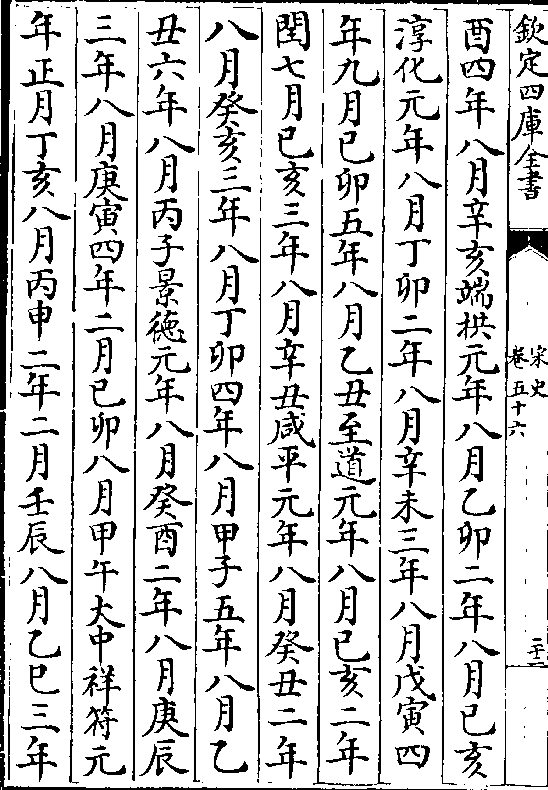 欽定四庫全書
宋史
卷五十六
二十二
酉四年八月辛亥端拱元年八月乙卯二年八月己亥
淳化元年八月丁卯二年八月辛未三年八月戊寅四
年九月己卯五年八月乙丑至道元年八月己亥二年
閏七月己亥三年八月辛丑咸平元年八月癸丑二年
八月癸亥三年八月丁卯四年八月甲子五年八月乙
丑六年八月丙子景徳元年八月癸酉二年八月庚辰
三年八月庚寅四年二月己卯八月甲午大中祥符元
年正月丁亥八月丙申二年二月壬辰八月乙巳三年